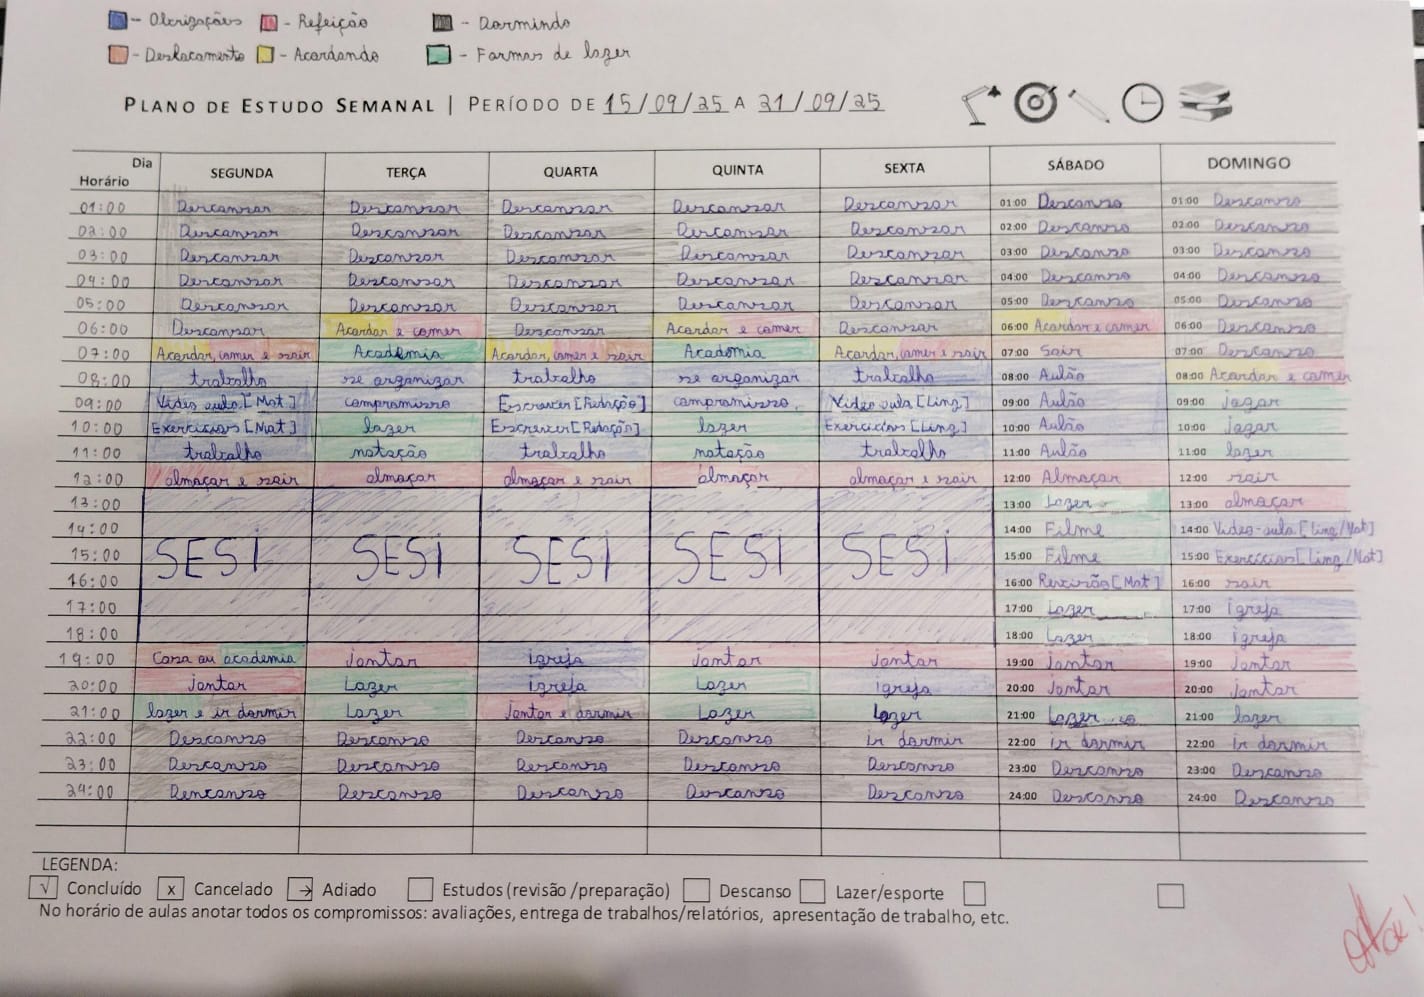 - Obrigações - Refeição - Dormindo
- Deslocamento - Acordando - Formas de lazer
PLANO DE ESTUDO SEMANAL | PERÍODO DE 15/09/25 A 21/09/25
Dia Horário SEGUNDA TERÇA QUARTA QUINTA SEXTA SÁBADO DOMINGO
01:00 Descansar Descansar Descansar Descansar Descansar 01:00 Descanso 01:00 Descanso
02:00 Descansar Descansar Descansar Descansar Descansar 02:00 Descanso 02:00 Descanso
03:00 Descansar Descansar Descansar Descansar Descansar 03:00 Descanso 03:00 Descanso
04:00 Descansar Descansar Descansar Descansar Descansar 04:00 Descanso 04:00 Descanso
05:00 Descansar Descansar Descansar Descansar Descansar 05:00 Descanso 05:00 Descanso
06:00 Descansar Acordar e comer Descansar Acordar e comer Descansar 06:00 Acordar e comer 06:00 Descanso
07:00 Acordar, comer e sair Academia Acordar, comer e sair Academia Acordar, comer e sair 07:00 Sair 07:00 Descanso
08:00 trabalho se organizar trabalho se organizar trabalho 08:00 Aulão 08:00 Acordar e comer
09:00 Video aula [Mat] compromisso Escrever [Redação] compromisso. Video aula [Ling] 09:00 Aulão 09:00 jogar
10:00 Exercícios [Mat] lazer Escrever [Redação] lazer Exercícios [Ling] 10:00 Aulão 10:00 jogar
11:00 trabalho natação trabalho natação trabalho 11:00 Aulão 11:00 lazer
12:00 almoçar e sair almoçar almoçar e sair almoçar almoçar e sair 12:00 Almoçar 12:00 sair
13:00 13:00 Lazer 13:00 almoçar
14:00 14:00 Filme 14:00 Video-aula [Ling/Mat]
15:00 SESI SESI SESI SESI SESI 15:00 Filme 15:00 Exercícios [Ling/Mat]
16:00 16:00 Revisão [Mat] 16:00 sair
17:00 17:00 Lazer 17:00 igreja
18:00 18:00 Lazer 18:00 igreja
19:00 Casa ou academia jantar igreja jantar jantar 19:00 jantar 19:00 jantar
20:00 jantar Lazer igreja Lazer igreja 20:00 jantar 20:00 jantar
21:00 lazer e ir dormir Lazer jantar e dormir Lazer Lazer 21:00 Lazer 21:00 lazer
22:00 Descanso Descanso Descanso Descanso ir dormir 22:00 ir dormir 22:00 ir dormir
23:00 Descanso Descanso Descanso Descanso Descanso 23:00 Descanso 23:00 Descanso
24:00 Dencanso Descanso Descanso Descanso Descanso 24:00 Descanso 24:00 Descanso
LEGENDA:
√ Concluído x Cancelado → Adiado Estudos (revisão /preparação) Descanso Lazer/esporte
No horário de aulas anotar todos os compromissos: avaliações, entrega de trabalhos/relatórios, apresentação de trabalho, etc.